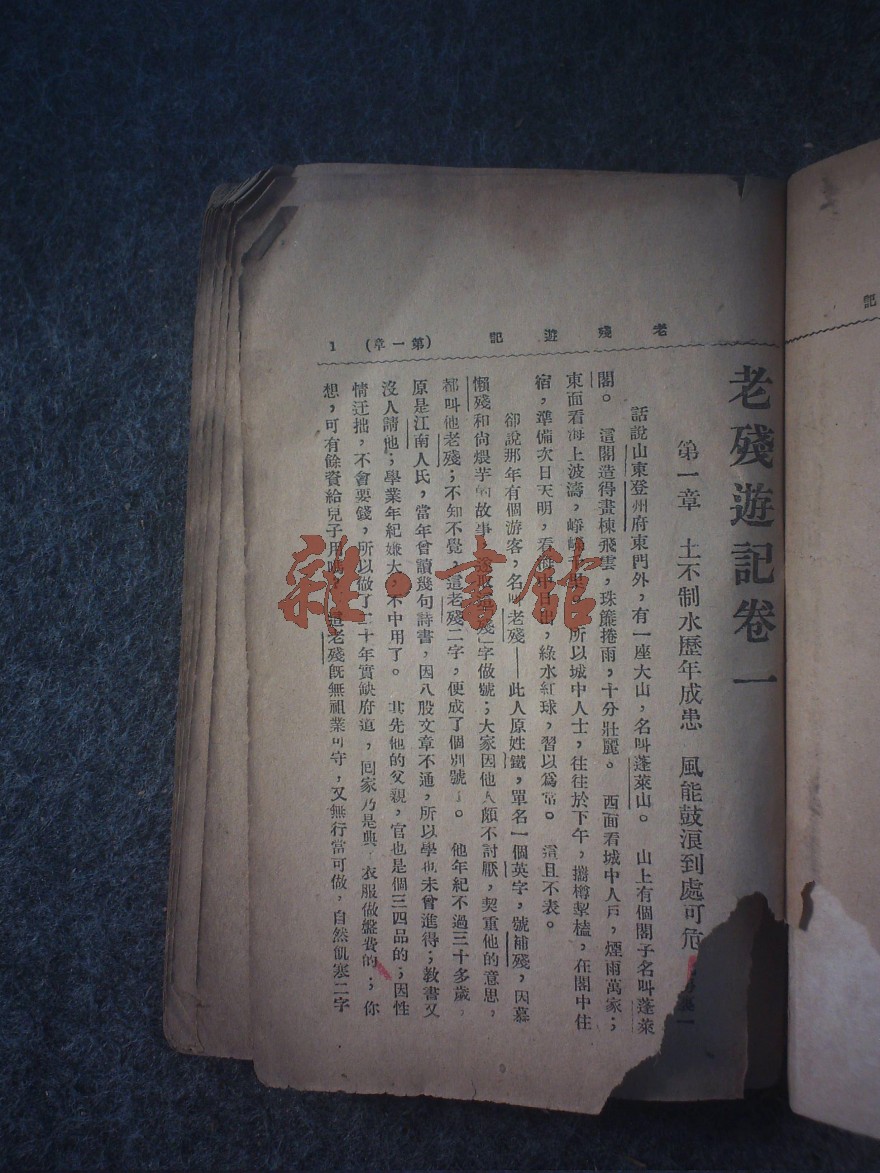 老殘遊記 (第一章) 1
老殘遊記卷一
第一章 土不制水歷年成患 風能鼓浪到處可危
話說山東登州府東門外，有一座大山，名叫蓬萊山。 山上有個閣子名叫蓬萊
閣。 這閣造得畫棟飛雲，珠簾捲雨，十分壯麗。 西面看城中人戶，煙雨萬家；
東面看海上波濤，崢嶸 所以城中人士，往往於下午，攜樽挈榼，在閣中住
宿，準備次日天明，看海中日出，綠水紅球，習以爲常。 這且不表。
卻說那年有個游客，名叫老殘——此人原姓鐵，單名一個英字，號補殘，因慕
懶殘和尚煨芋的故事，遂取 殘字做號；大家因他人頗不討厭，契重他的意思，
都叫他老殘；不知不覺，這老殘二字，便成了個別號了。 他年紀不過三十多歲，
原是江南人氏，當年曾讀幾句詩書，因八股文章不通，所以學也未曾進得；教書又
沒人請他；學業年紀嫌大，不中用了。 其先他的父親，官也是個三四品的；因性
情迂拙，不會要錢，所以做了二十年實缺府道，回家乃是典了衣服做盤費的；你
想，可有餘資給兒子用嗎 這老殘旣無祖業可守，又無行當可做，自然飢寒二字
記
雜·書館